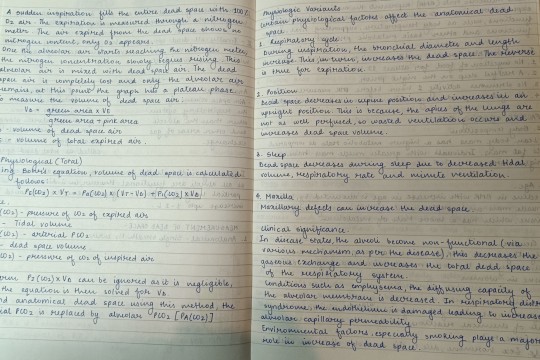 A sudden inspiration fills the entire dead space with 100%
O2 air. The expiration is measured through a nitrogen
meter. The air expired from the dead space shows no
nitrogen content, only O2 appears.
Once the alveolar air starts reaching the nitrogen meter,
the nitrogen concentration slowly begins rising. This
alveolar air is mixed with dead space air. The dead
space air is completely lost and only the alveolar air
remains, at this point the graph hits a plateau phase.
To measure the volume of dead space air:
VD = green area x VE
green area + pink area
- volume of dead space air
- volume of total expired air.
Physiological (Total)
Using Bohr's equation, volume of dead space is calculated
follows:
PE(CO2) x VT = Pa(CO2) x (VT - VD) + PI(CO2) x VD
(CO2) - pressure of CO2 of expired air
- Tidal volume
(CO2) - arterial PCO2
- dead space volume
(CO2) - pressure of CO2 of inspired air
PI(CO2) x VD can be ignored as it is negligible,
the equation is then solved for VD
anatomical dead space using this method, the
arterial PCO2 is replaced by alveolar PCO2 [PA(CO2)]
Physiologic Variants
Certain physiological factors affect the anatomical dead
space
1. Respiratory cycle
During inspiration, the bronchial diameter and length
increase. This, in turn, increases the dead space. The reverse
is true for expiration.
2. Position
Dead space decreases in supine position and increases in an
upright position. This is because, the apices of the lungs are
not as well perfused, so wasted ventilation occurs and
increases dead space volume.
3. Sleep
Dead space decreases during sleep due to decreased tidal
volume, respiratory rate and minute ventilation.
4. Maxilla
Maxillary defects can increase the dead space.
Clinical significance.
In disease states, the alveoli become non-functional (via
various mechanism, as per the disease), this decreases the
gaseous exchange and increases the total dead space
of the respiratory system.
Conditions such as emphysema, the diffusing capacity of
the alveolar membrane is decreased. In respiratory distress
syndrome, the endothelium is damaged leading to increased
alveolar capillary permeability.
Environmental factors, especially smoking plays a major
role in increase of dead space.